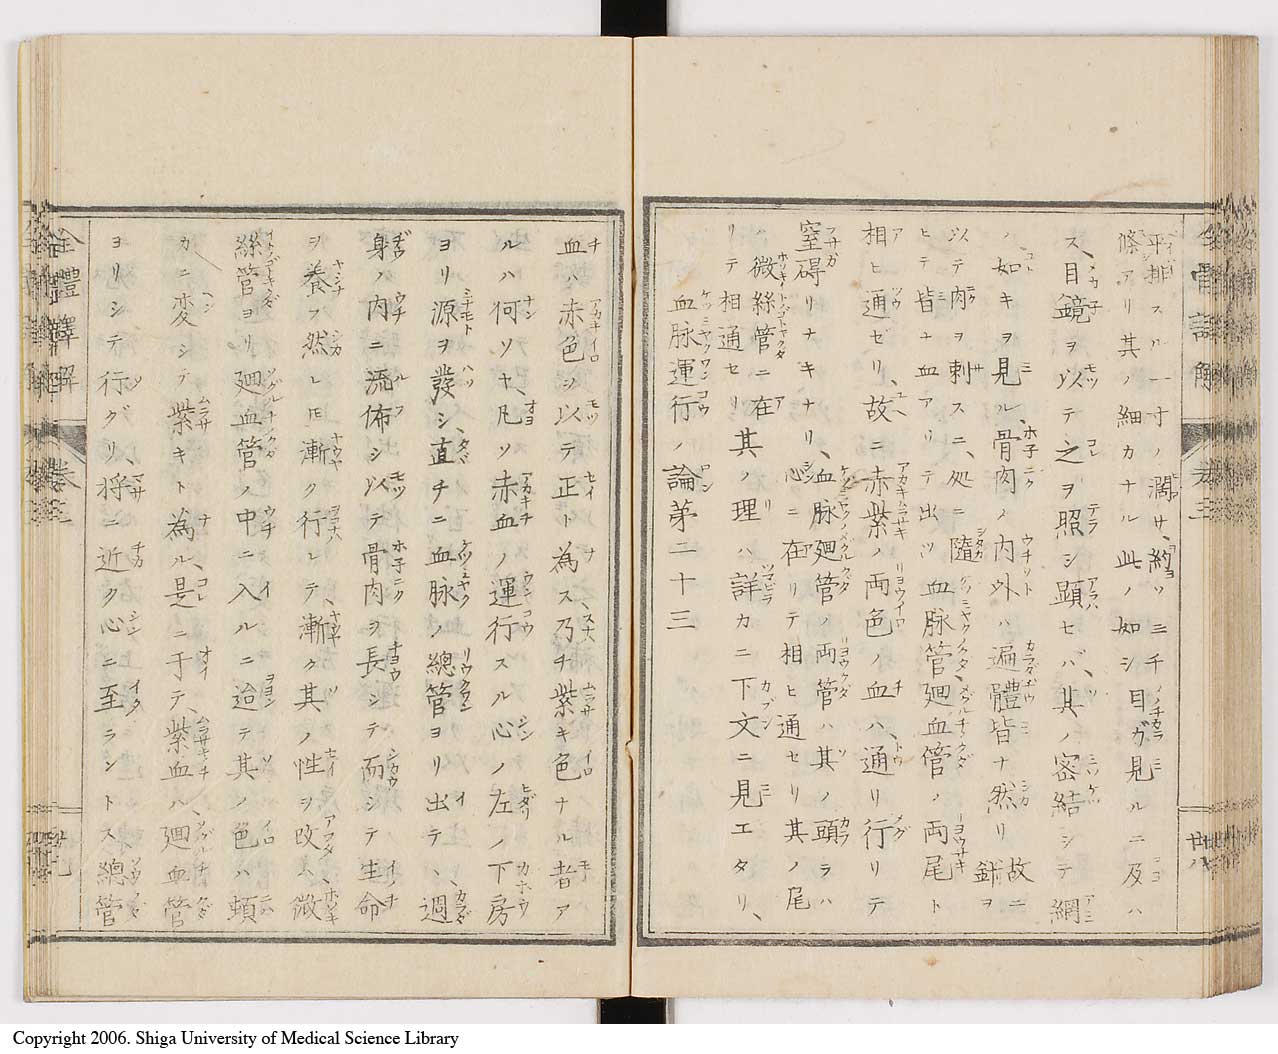 平排スル一寸ノ濶サ、約ソ三千
條アリ其ノ細カナル此ノ如シ目ガ見ルニ及ハ
ス、目鏡ヲ以テ之ヲ照シ顕セバ、其ノ密結シテ網
ノ如キヲ見ル、骨肉ノ内外ハ遍體皆ナ然リ故ニ鉾ヲ
以テ肉ヲ刺スニ、処ニ隨
ヒテ皆ナ血アリテ出ツ血脉管廻血管ノ両尾ト
相ヒ通ゼリ、故ニ赤紫ノ両色ノ血ハ通リ行リテ
窒碍リナキナリ、血脉廻管ノ両管ハ其ノ頭ラハ
心ニ在リテ相ヒ通セリ其ノ尾
ハ微絲管ニ在
リテ相通セリ其ノ理ハ詳カニ下文ニ見エタリ、
血脉運行ノ論第二十三
卷三
廿八
血ハ赤色シ以テ正ト為ス乃チ紫キ色ナル者ア
ルハ何ソヤ、凡ソ赤血ノ運行スル心ノ左ノ下房
ヨリ源ヲ發シ、直チニ血脉ノ總管ヨリ出テヽ、週
身ノ内ニ流佈シ以テ骨肉ヲ長シテ而シテ生命
ヲ養フ然レ𪜈漸ク行レテ、漸ク其ノ性ヲ改メ、微
絲管ヨリ廻血管ノ中ニ入ルニ迨テ其ノ色ハ頓
カニ変シテ紫キト為ル、是ニ于テ、紫血ハ、廻血管
ヨリシテ行グリ、将ニ近ク心ニ至ラントス總管
全體譯解
卷三
Copyright 2006. Shiga University of Medical Science Library